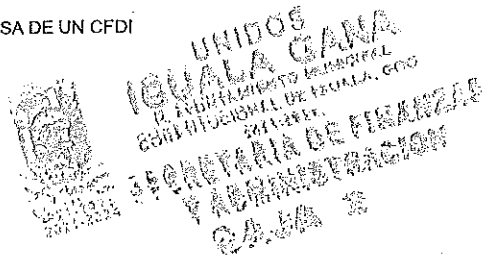 SA DE UN CFDI
UNIDOS
IGUALA GANA
H. AYUNTAMIENTO MUNICIPAL
CONSTITUCIONAL DE IGUALA, GRO
SECRETARIA DE FINANZAS
Y ADMINISTRACION
CAJA